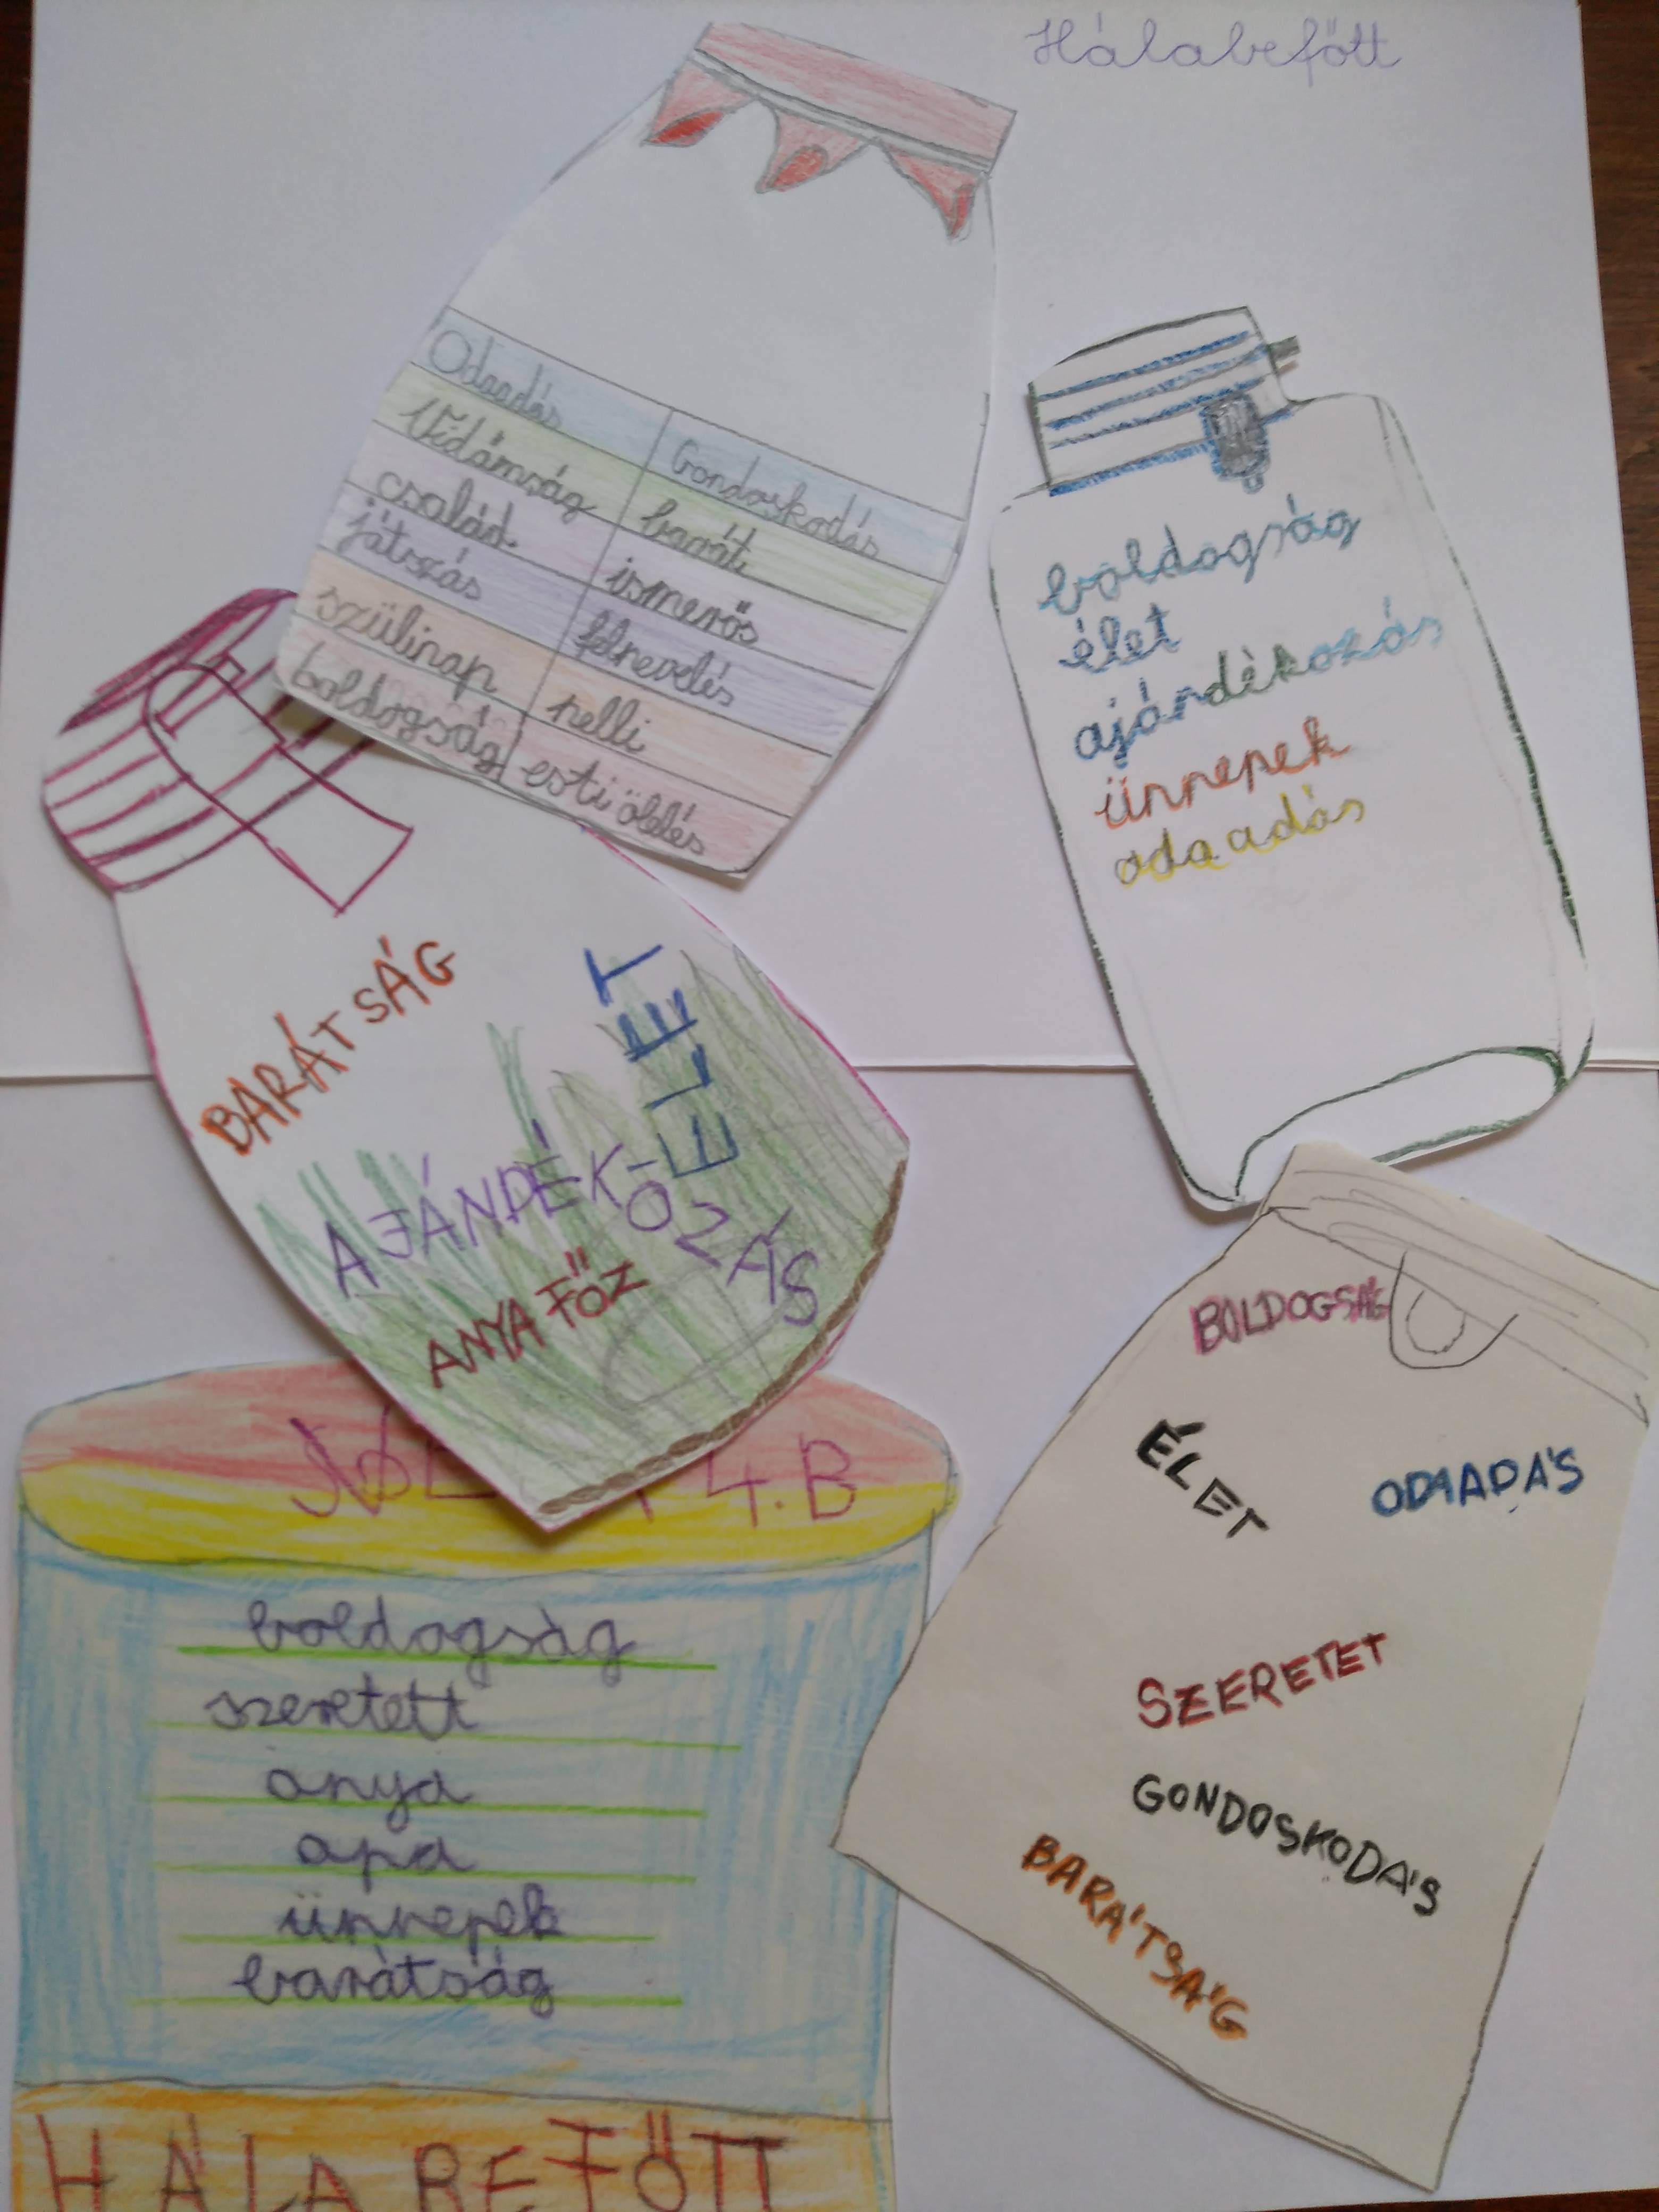 Hálabefőtt
Odaadás Gondoskodás
Vidámság baráti
család ismerős
játszás felnevelés
szülinap nelli
boldogság esti ölelés
boldogság
élet
ajándékozás
ünnepek
odaadás
BARÁTSÁG
ÉLET
AJÁNDÉK-
OZÁS
ANYA FŐZ
BOLDOGSÁG
ÉLET
ODAADÁS
SZERETET
GONDOSKODÁS
BARÁTSÁG
4.B
boldogság
szeretett
anya
apa
ünnepek
barátság
HÁLA BEFŐTT